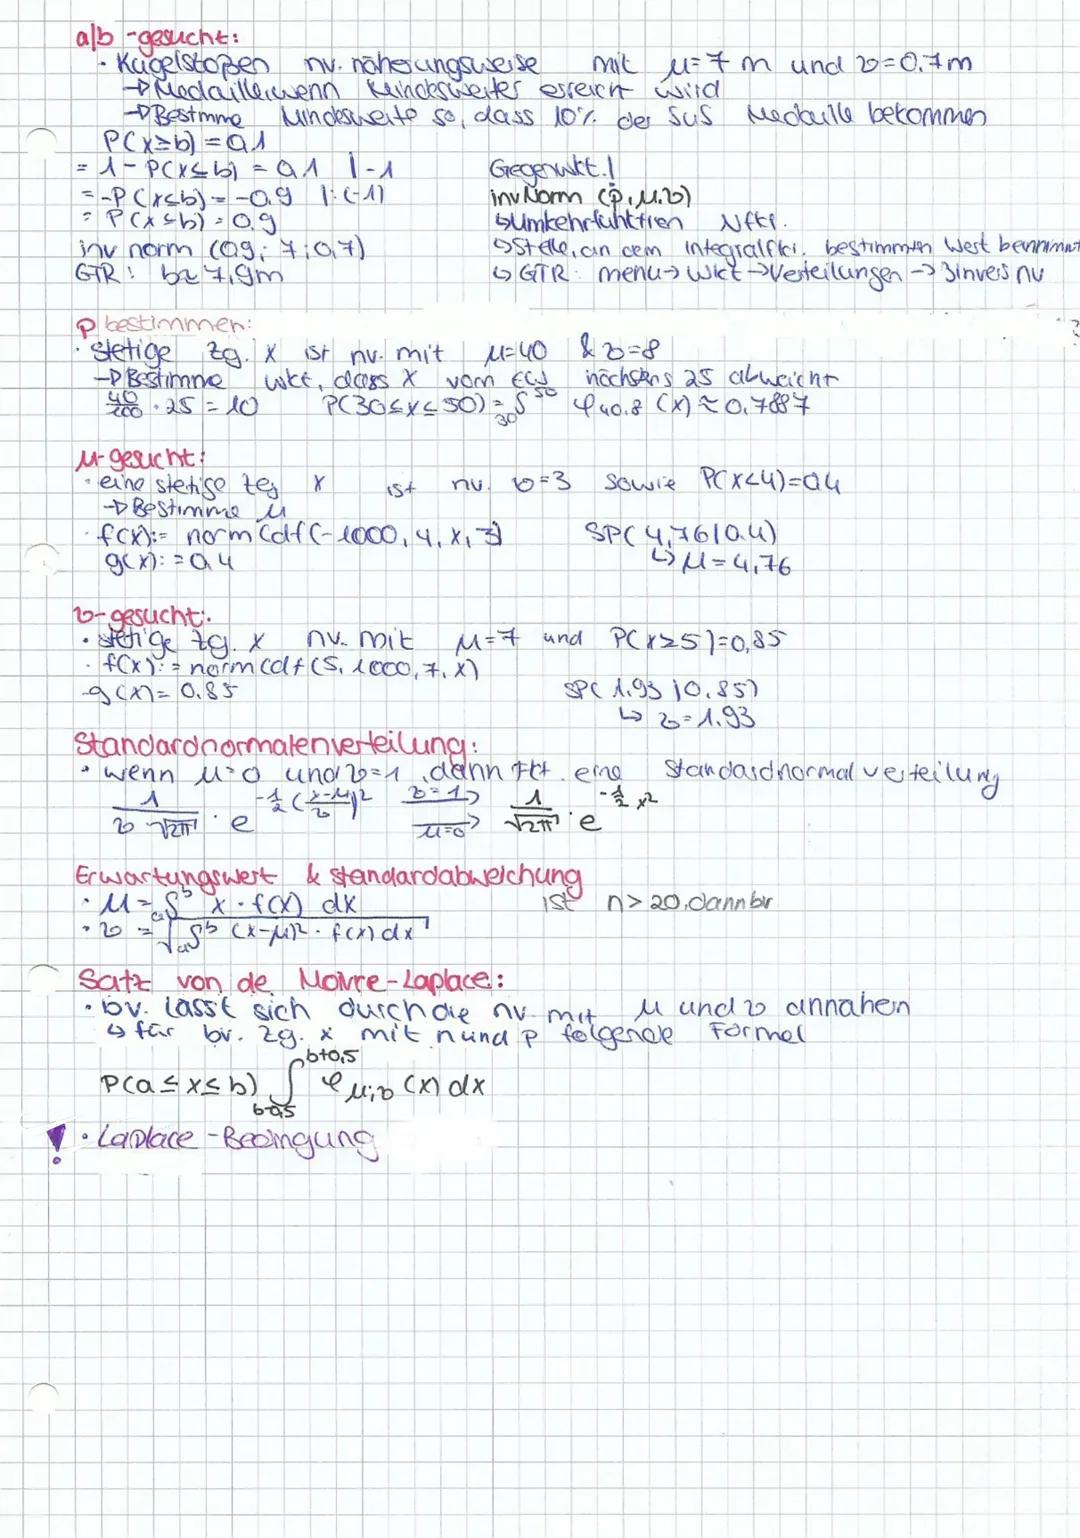 a/b -gesucht:
· Kugelstoßen nv. näherungsweise mit μ=7 m und σ=0.7m
→ Medaille, wenn Mindesweiter erreich wird
→ Bestimme Mindesweite so, dass 10% der SuS Medaille bekommen
P(x≥b) = 0,1
= 1 - P(x≤b) = 0,1 |-1
Gegenwkt.!
= -P(x≤b) = -0,9 |:(-1)
invNorm (p, μ, σ)
= P(x≤b) = 0,9
↳ Umkehrfunktion Nfkt.
inv norm (0,9; 7; 0,7)
↳ Stelle, an dem Integralfkt. bestimmten Wert bennimmt
GTR: b≈ 7,9m
↳ GTR: menu → Wkt → Verteilungen → 3invers nv
p bestimmen:
· stetige zg. X ist nv. mit μ=40 & σ=8
→ Bestimme Wkt, dass X vom EW höchstens 25 abweicht
40/100 · 25 = 10 P(30≤x≤50) = ∫³⁰⁵⁰ φ40,8 (x) ≈ 0,7887
μ-gesucht:
· eine stetige zg X ist nv. σ=3 sowie P(x<4)=0,4
→ Bestimme μ
· f(x):= normCdf(-1000, 4, x, 3) SP(4,76|0,4)
g(x): = 0,4 ↳ μ = 4,76
σ-gesucht:
· stetige zg. x nv. mit μ=7 und P(x≥5)=0,85
· f(x): = normCdf(5, 1000, 7, x)
-g(x) = 0.85 SP(1.93|0.85)
↳ σ=1.93
Standardnormalenverteilung:
· wenn μ=0 und σ=1, dann Fkt. eine Standardnormalverteilung
1/(σ·√2π) · e^(-1/2((x-μ)/σ)²) σ=1→ μ=0→ 1/√2π · e^(-1/2 x²)
Erwartungswert & standardabweichung
· μ = ∫ab x · f(x) dx
ist n>20, dann br
· σ = √(∫ab (x-μ)² · f(x) dx)
Satz von de Moivre-Laplace:
· bv. lässt sich durch die nv mit μ und σ annähen
↳ für bv. zg. x mit n und p folgende Formel
P(a ≤ x ≤ b) ∫b-0,5 b+0,5 φμ;σ (x) dx
! · Laplace-Bedingung